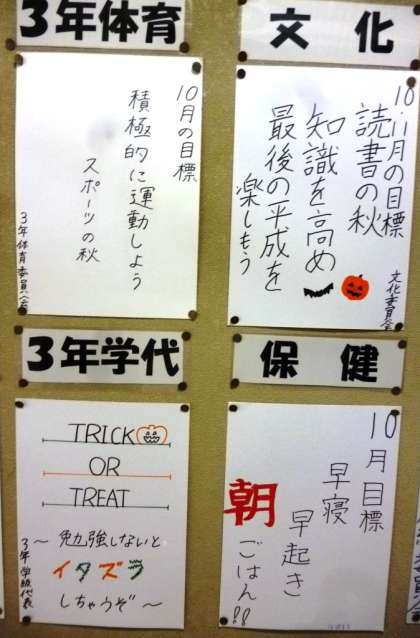 3年体育
10月の目標
積極的に運動しよう
スポーツの秋
3年体育委員会
文化
10.11月の目標
読書の秋
知識を高め
最後の平成を
楽しもう
文化委員会
3年学代
TRICK
OR
TREAT
～勉強しないと
イタズラ
しちゃうぞ～
3年学級代表
保健
10月目標
早寝
早起き
朝ごはん!!